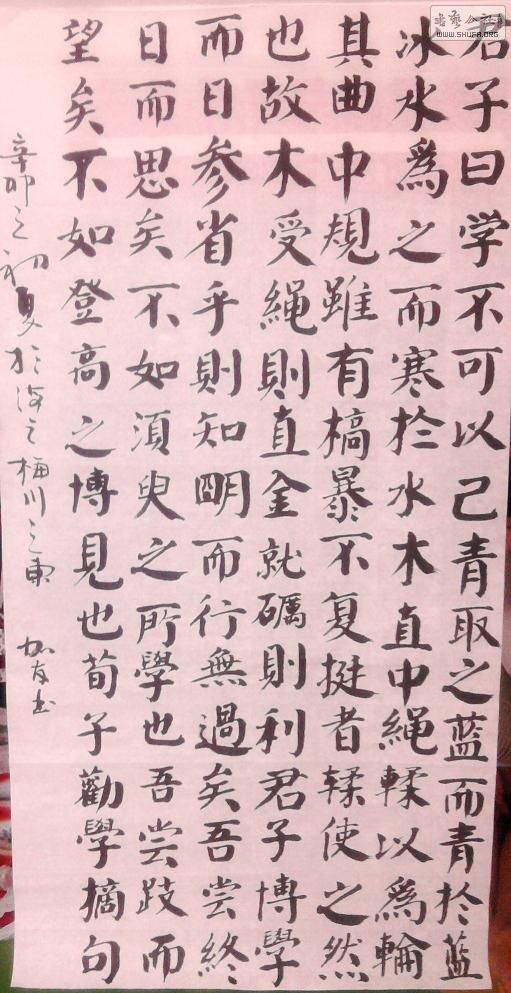 君子曰学不可以己青取之蓝而青於蓝
冰水爲之而寒於水木直中繩輮以爲輪
其曲中規雖有槁暴不复挺者輮使之然
也故木受繩則直金就礪則利君子博學
而日参省乎則知明而行無過矣吾尝終
日而思矣不如須臾之所學也吾尝跂而
望矣不如登高之博見也荀子勸學摘句
辛卯之初夏於海之梅川之東 友书
书艺公社
WWW.SHUFA.ORG